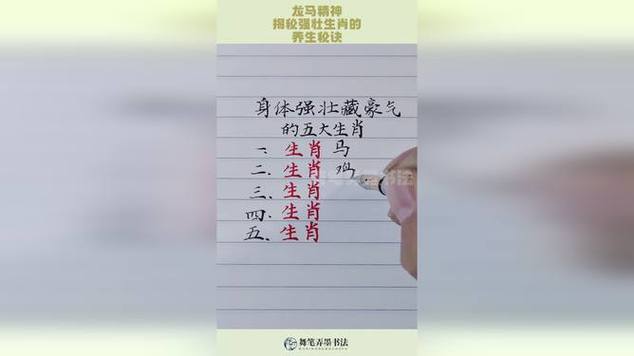 龙马精神
揭秘强壮生肖的
养生秘诀
身体强壮藏豪气
的五大生肖
一、生肖 马
二、生肖
三、生肖
四、生肖
五、生肖
舞笔弄墨书法